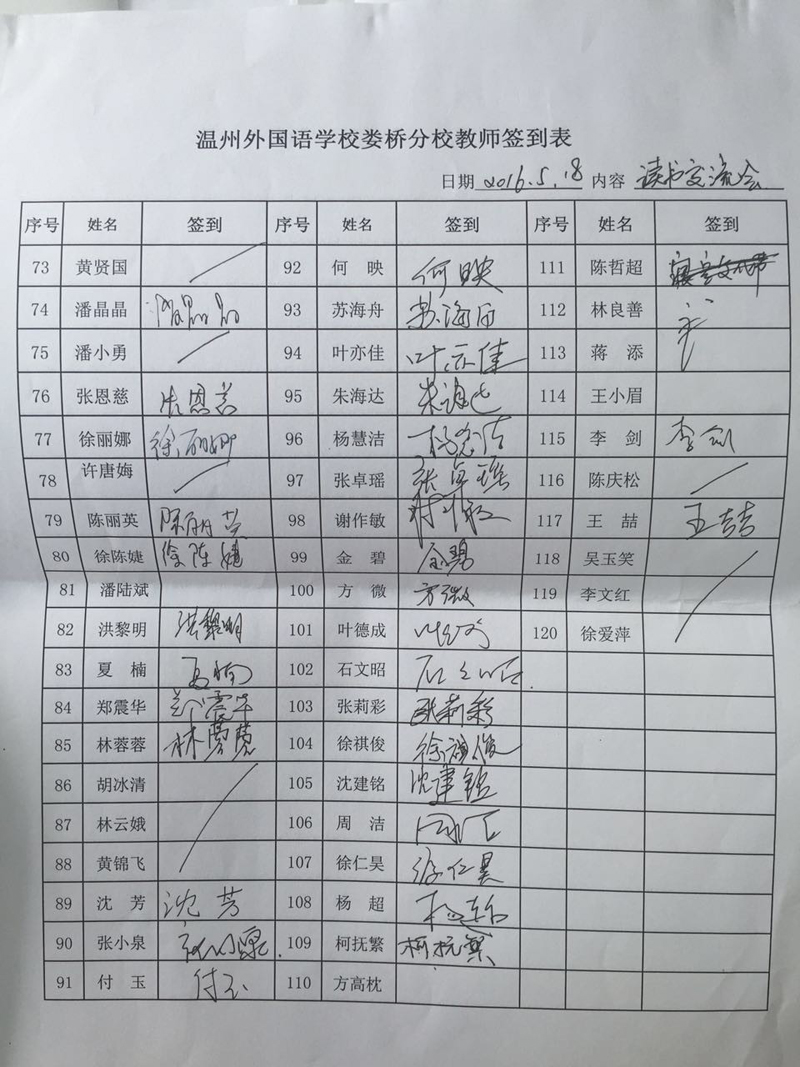 温州外国语学校娄桥分校教师签到表
日期 2016.5.18 内容 读书交流会
序号 姓名 签到 序号 姓名 签到 序号 姓名 签到
73 黄贤国 92 何映 何映 111 陈哲超
74 潘晶晶 潘晶晶 93 苏海舟 苏海舟 112 林良善
75 潘小勇 94 叶亦佳 叶亦佳 113 蒋添
76 张恩慈 张恩慈 95 朱海达 朱海达 114 王小眉
77 徐丽娜 徐丽娜 96 杨慧洁 杨慧洁 115 李剑 李剑
78 许唐娒 97 张卓瑶 张卓瑶 116 陈庆松
79 陈丽英 陈丽英 98 谢作敏 谢作敏 117 王喆 王喆
80 徐陈婕 徐陈婕 99 金碧 金碧 118 吴玉笑
81 潘陆斌 100 方微 方微 119 李文红
82 洪黎明 洪黎明 101 叶德成 叶德成 120 徐爱萍
83 夏楠 夏楠 102 石文昭 石文昭
84 郑震华 郑震华 103 张莉彩 张莉彩
85 林蓉蓉 林蓉蓉 104 徐祺俊 徐祺俊
86 胡冰清 105 沈建铭 沈建铭
87 林云娥 106 周洁 周洁
88 黄锦飞 107 徐仁昊 徐仁昊
89 沈芳 沈芳 108 杨超 杨超
90 张小泉 张小泉 109 柯抚繁 柯抚繁
91 付玉 付玉 110 方高枕